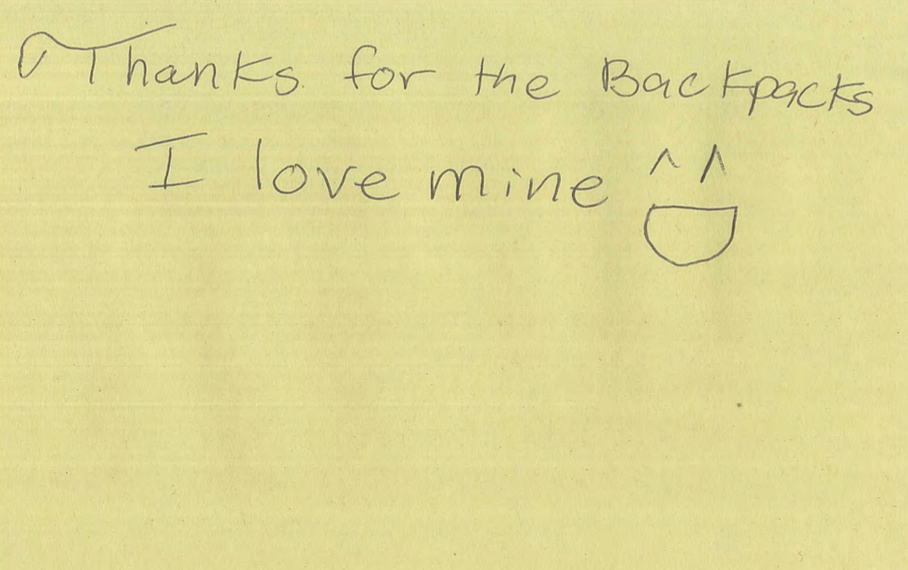 Thanks for the Backpacks
I love mine